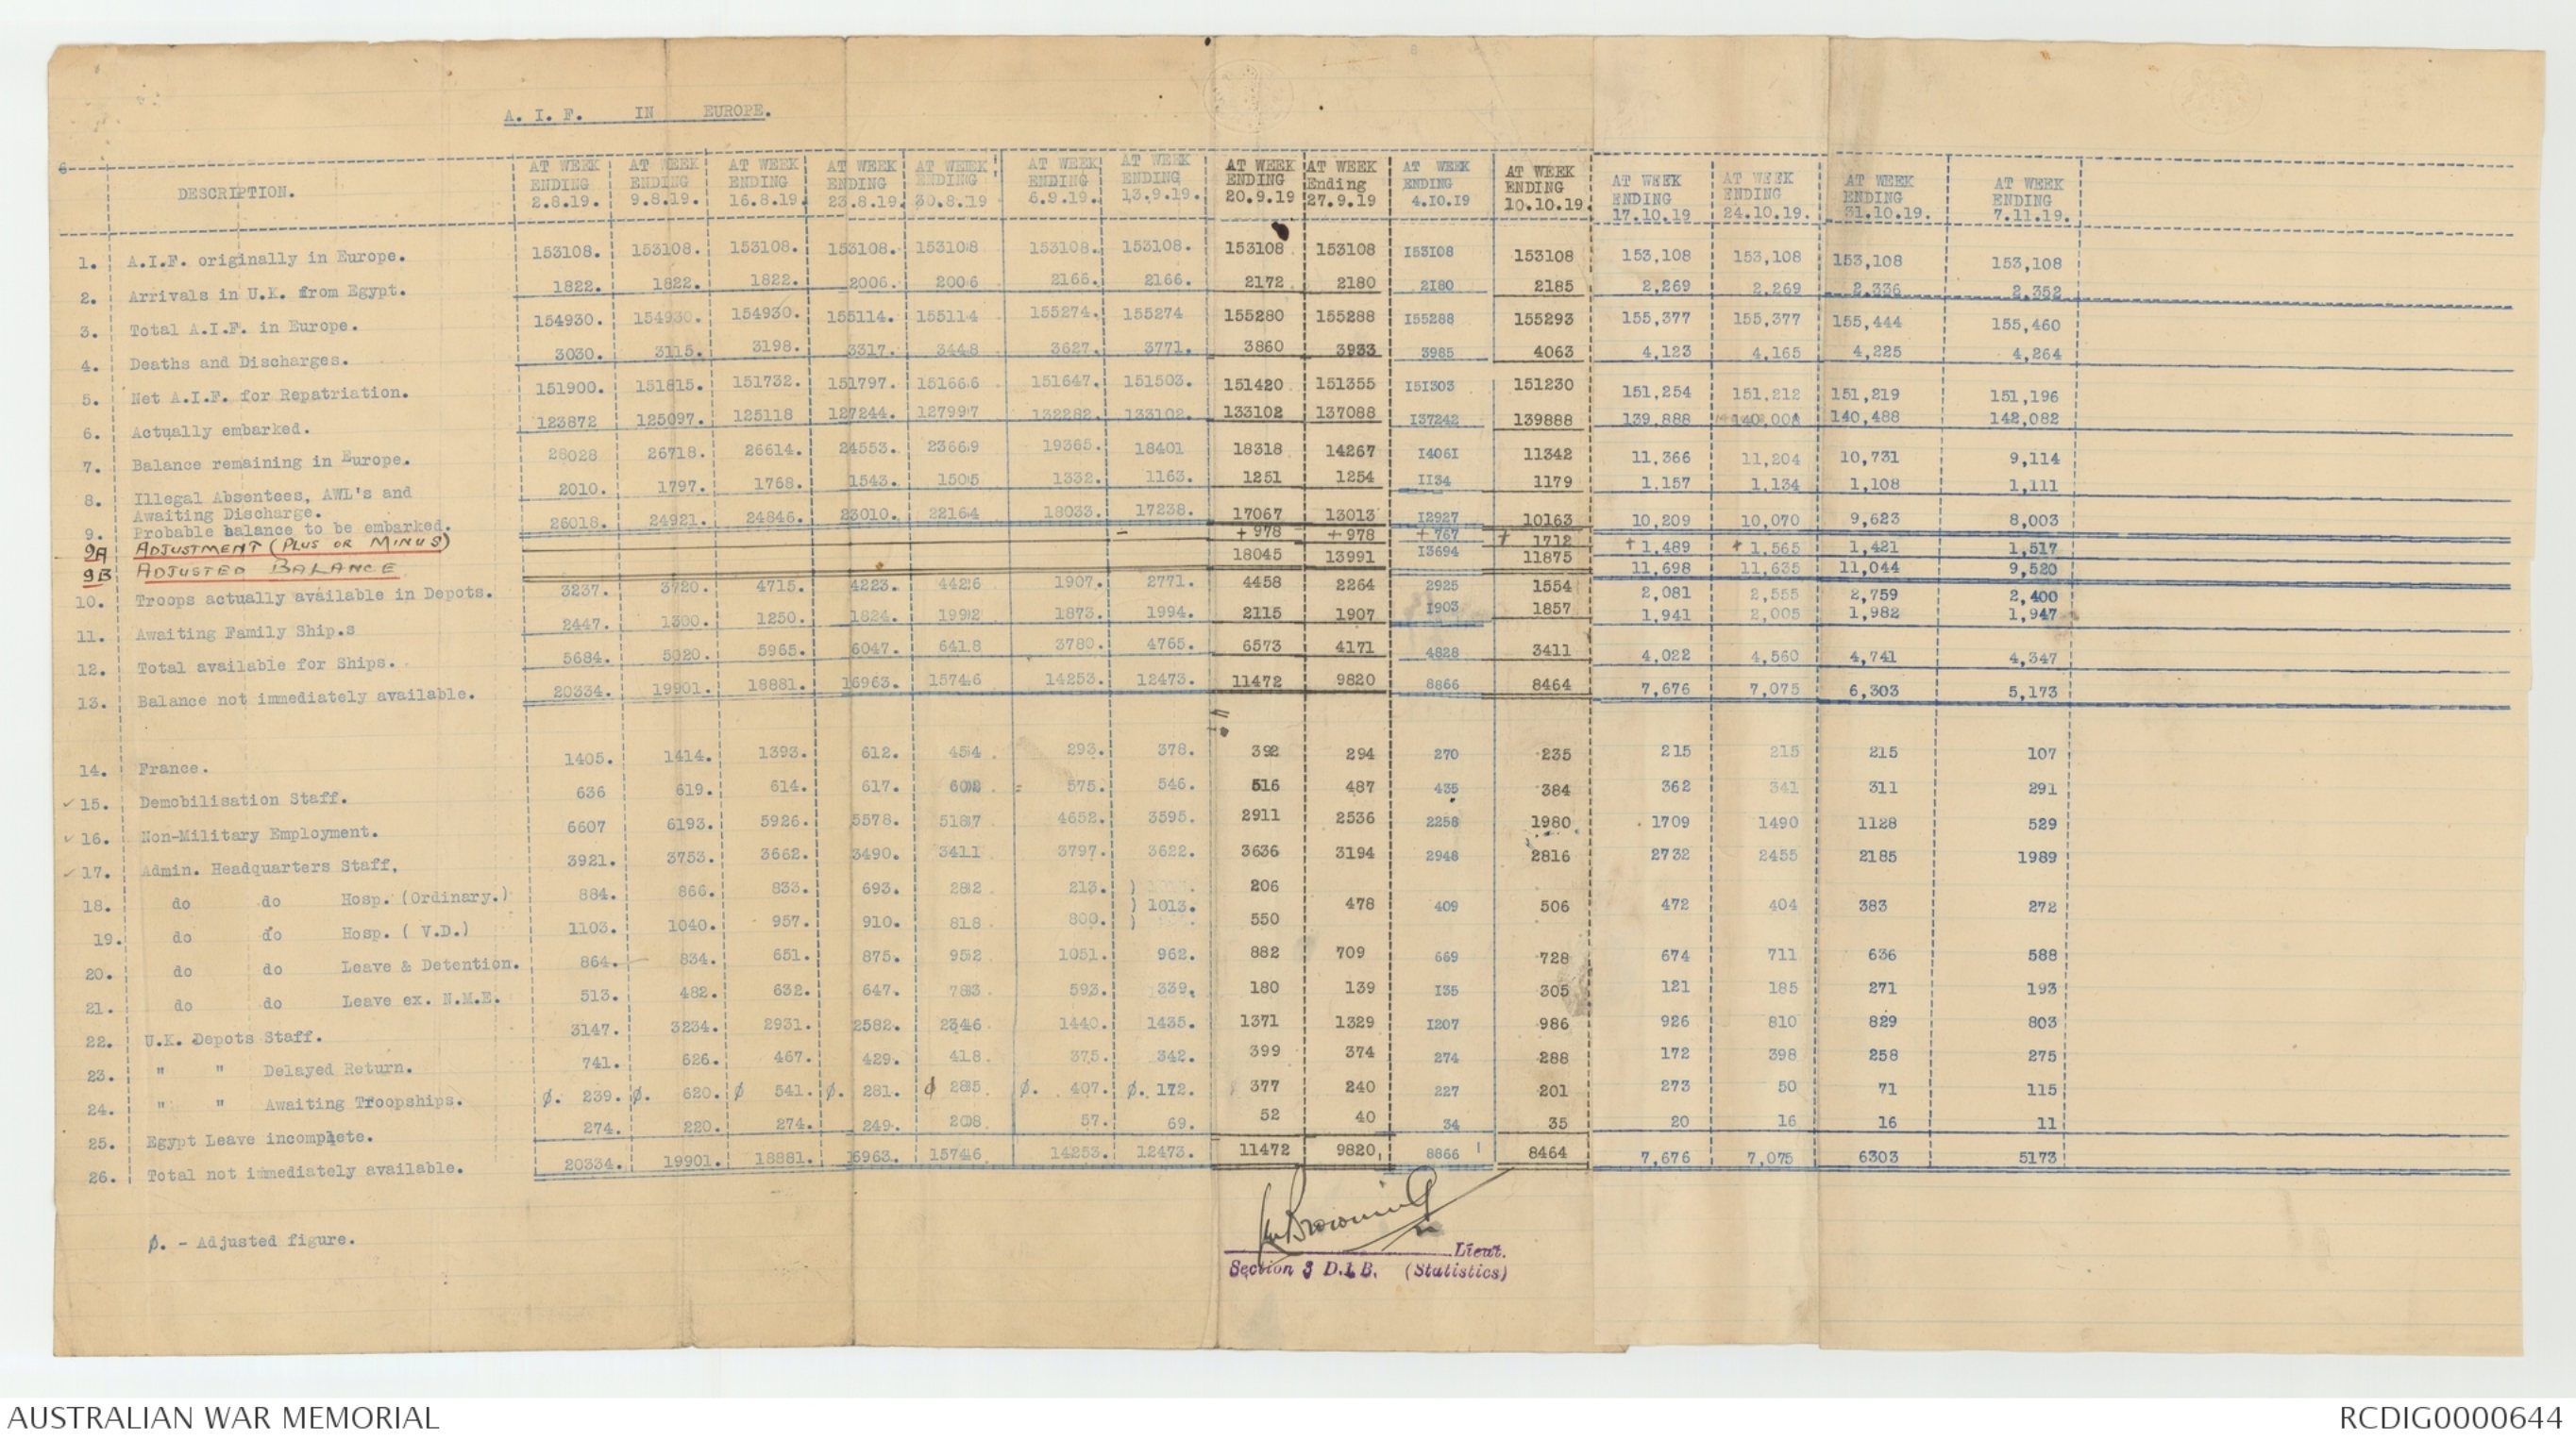 A. I. F. IN EUROPE.
DESCRIPTION. AT WEEK ENDING 2.8.19. AT WEEK ENDING 9.8.19. AT WEEK ENDING 16.8.19. AT WEEK ENDING 23.8.19. AT WEEK ENDING 30.8.19 AT WEEK ENDING 6.9.19. AT WEEK ENDING 13.9.19. AT WEEK ENDING 20.9.19 AT WEEK Ending 27.9.19 AT WEEK ENDING 4.10.19 AT WEEK ENDING 10.10.19. AT WEEK ENDING 17.10.19 AT WEEK ENDING 24.10.19. AT WEEK ENDING 31.10.19. AT WEEK ENDING 7.11.19.
1. A.I.F. originally in Europe. 153108. 153108. 153108. 153108. 153108 153108. 153108. 153108 153108 153108 153108 153,108 153,108 153,108 153,108
2. Arrivals in U.K. from Egypt. 1822. 1822. 1822. 2006. 2006 2166. 2166. 2172 2180 2180 2185 2,269 2,269 2,336 2,352
3. Total A.I.F. in Europe. 154930. 154930. 154930. 155114. 155114 155274. 155274 155280 155288 155288 155293 155,377 155,377 155,444 155,460
4. Deaths and Discharges. 3030. 3115. 3198. 3317. 3448 3627. 3771. 3860 3933 3985 4063 4,123 4,165 4,225 4,264
5. Net A.I.F. for Repatriation. 151900. 151815. 151732. 151797. 151666 151647. 151503. 151420 151355 151303 151230 151,254 151,212 151,219 151,196
6. Actually embarked. 123872 125097. 125118 127244. 127997 132282. 133102. 133102 137088 137242 139888 139,888 140,008 140,488 142,082
7. Balance remaining in Europe. 28028 26718. 26614. 24553. 23669 19365. 18401 18318 14267 14061 11342 11,366 11,204 10,731 9,114
8. Illegal Absentees, AWL's and
Awaiting Discharge. 2010. 1797. 1768. 1543. 1505 1332. 1163. 1251 1254 1134 1179 1,157 1,134 1,108 1,111
9. Probable balance to be embarked. 26018. 24921. 24846. 23010. 22164 18033. 17238. 17067 13013 12927 10163 10,209 10,070 9,623 8,003
9A ADJUSTMENT (PLUS OR MINUS) + 978 + 978 + 767 + 1712 + 1,489 + 1,565 1,421 1,517
9B ADJUSTED BALANCE 18045 13991 13694 11875 11,698 11,635 11,044 9,520
10. Troops actually available in Depots. 3237. 3720. 4715. 4223. 4426 1907. 2771. 4458 2264 2925 1554 2,081 2,555 2,759 2,400
11. Awaiting Family Ship.s 2447. 1300. 1250. 1824. 1992 1873. 1994. 2115 1907 1903 1857 1,941 2,005 1,982 1,947
12. Total available for Ships. 5684. 5020. 5965. 6047. 6418 3780. 4765. 6573 4171 4828 3411 4,022 4,560 4,741 4,347
13. Balance not immediately available. 20334. 19901. 18881. 16963. 15746 14253. 12473. 11472 9820 8866 8464 7,676 7,075 6,303 5,173
14. France. 1405. 1414. 1393. 612. 454 . 293. 378. 392 294 270 235 215 215 215 107
✓ 15. Demobilisation Staff. 636 619. 614. 617. 602 . 575. 546. 516 487 435 384 362 341 311 291
✓ 16. Non-Military Employment. 6607 6193. 5926. 5578. 5187 4652. 3595. 2911 2536 2256 1980 1709 1490 1128 529
✓ 17. Admin. Headquarters Staff, 3921. 3753. 3662. 3490. 3411 3797. 3622. 3636 3194 2948 2816 2732 2455 2185 1989
18. do do Hosp. (Ordinary.) 884. 866. 833. 693. 282 . 213. ) 1013. 206 478 409 506 472 404 383 272
19. do do Hosp. ( V.D.) 1103. 1040. 957. 910. 818 . 800. ) 550
20. do do Leave & Detention. 864. 834. 651. 875. 952 . 1051. 962. 882 709 669 728 674 711 636 588
21. do do Leave ex. N.M.E. 513. 482. 632. 647. 783 . 593. 339. 180 139 135 305 121 185 271 193
22. U.K. Depots Staff. 3147. 3234. 2931. 2582. 2346 1440. 1435. 1371 1329 1207 986 926 810 829 803
23. " " Delayed Return. 741. 626. 467. 429. 418 . 375. 342. 399 374 274 288 172 398 258 275
24. " " Awaiting Troopships. ø. 239. ø. 620. ø 541. ø. 281. ø 285 . ø. 407. ø. 172. 377 240 227 201 273 50 71 115
25. Egypt Leave incomplete. 274. 220. 274. 249. 208 . 57. 69. 52 40 34 35 20 16 16 11
26. Total not immediately available. 20334. 19901. 18881. 16963. 15746 14253. 12473. 11472 9820 8866 8464 7,676 7,075 6303 5173
Browning
ø. - Adjusted figure.
Lieut.
Section 3 D.I.B. (Statistics)
AUSTRALIAN WAR MEMORIAL RCDIG0000644